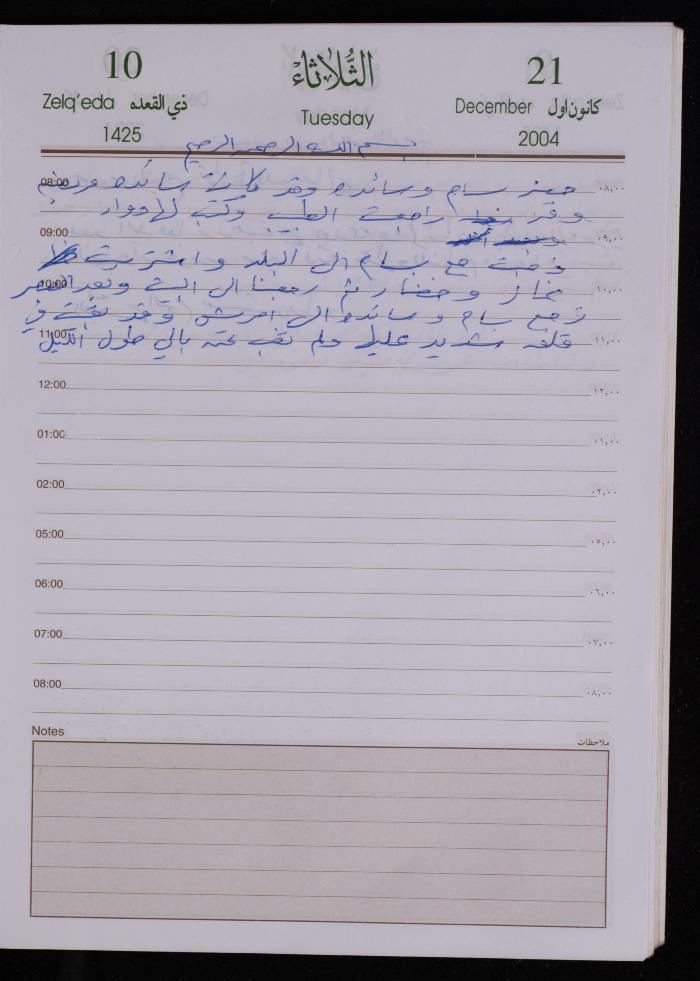 10 الثُّلاثاء 21
Zelq'eda ذي القعده Tuesday December كانون اول
1425 2004
بسم الله الرحمن الرحيم
08:00 حضر بسام وسائده وقد كانة سائده مريضه ٠٨,٠٠
وقد راجعت الطبيب وكتب لها دواء
09:00 ٠٩,٠٠
ذهبت مع بسام الى البلد واشتريت
10:00 وخضار ثم رجعنا الى البيت وبعد العصر ١٠,٠٠
رجع بسام وسائده الى وقد بقيت في
11:00 قلق شديد عليها ولم تغب عن بالي طول الليل ١١,٠٠
12:00 ١٢,٠٠
01:00 ٠١,٠٠
02:00 ٠٢,٠٠
05:00 ٠٥,٠٠
06:00 ٠٦,٠٠
07:00 ٠٧,٠٠
08:00 ٠٨,٠٠
Notes ملاحظات